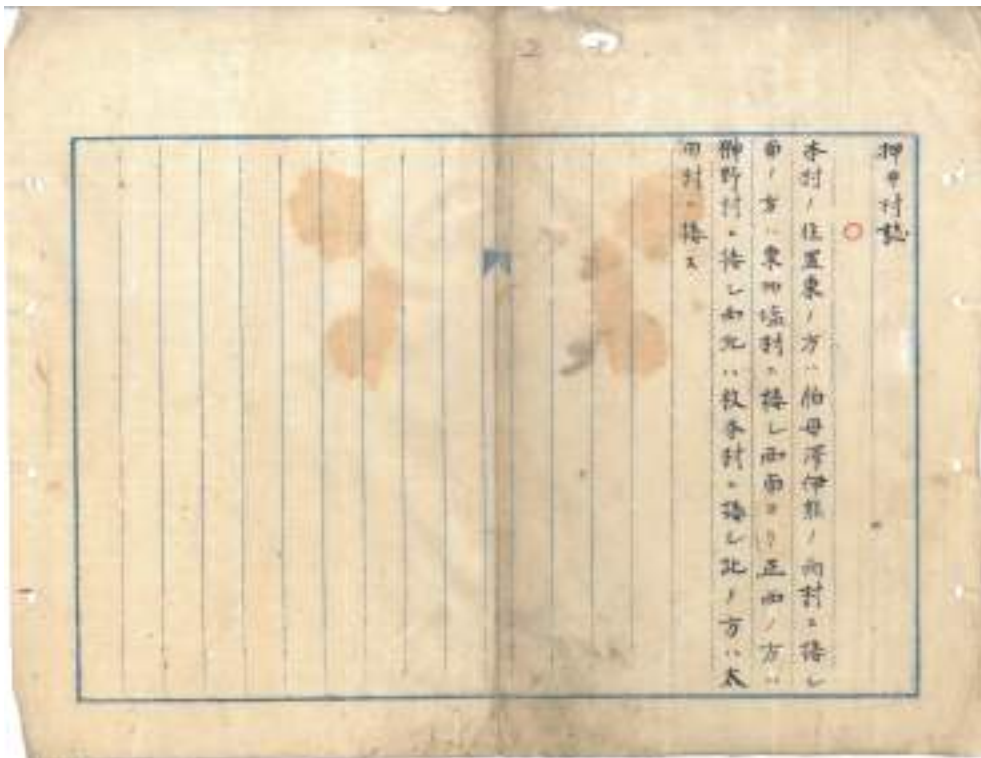 押日村誌
本村ノ位置東ノ方ハ伯母澤伊熊ノ両村ニ接シ
南ノ方ハ東 村ニ接シ西南ヨリ正西ノ方ハ
野村ニ接シ西北ハ 本村ニ接シ北ノ方ハ太
田村ニ接ス